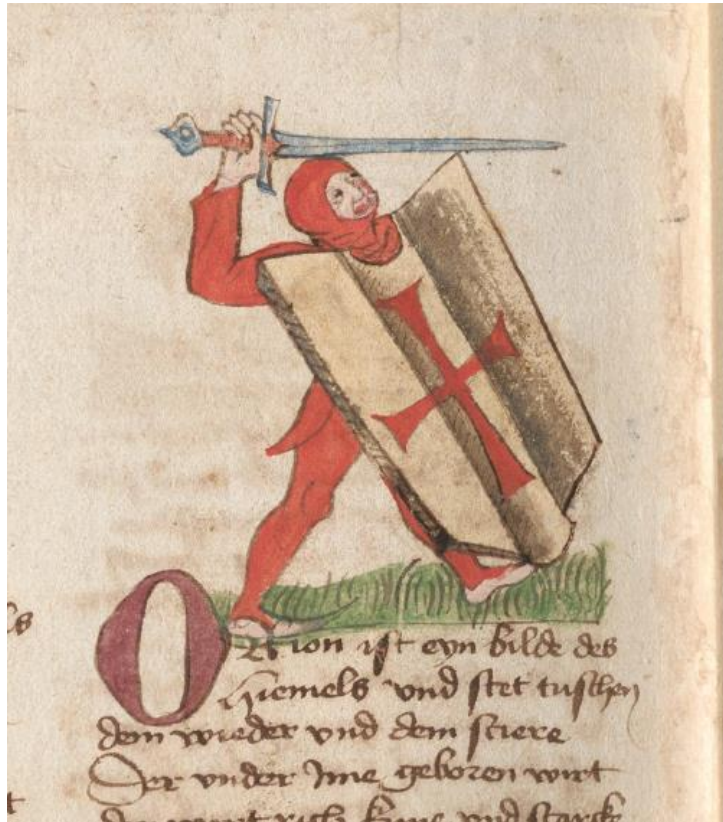 ORion ist eyn bilde des
hiemels vnd stet tuschen
dem wieder vnd dem stiere
Der vnder Ime geboren wirt
vnd starck